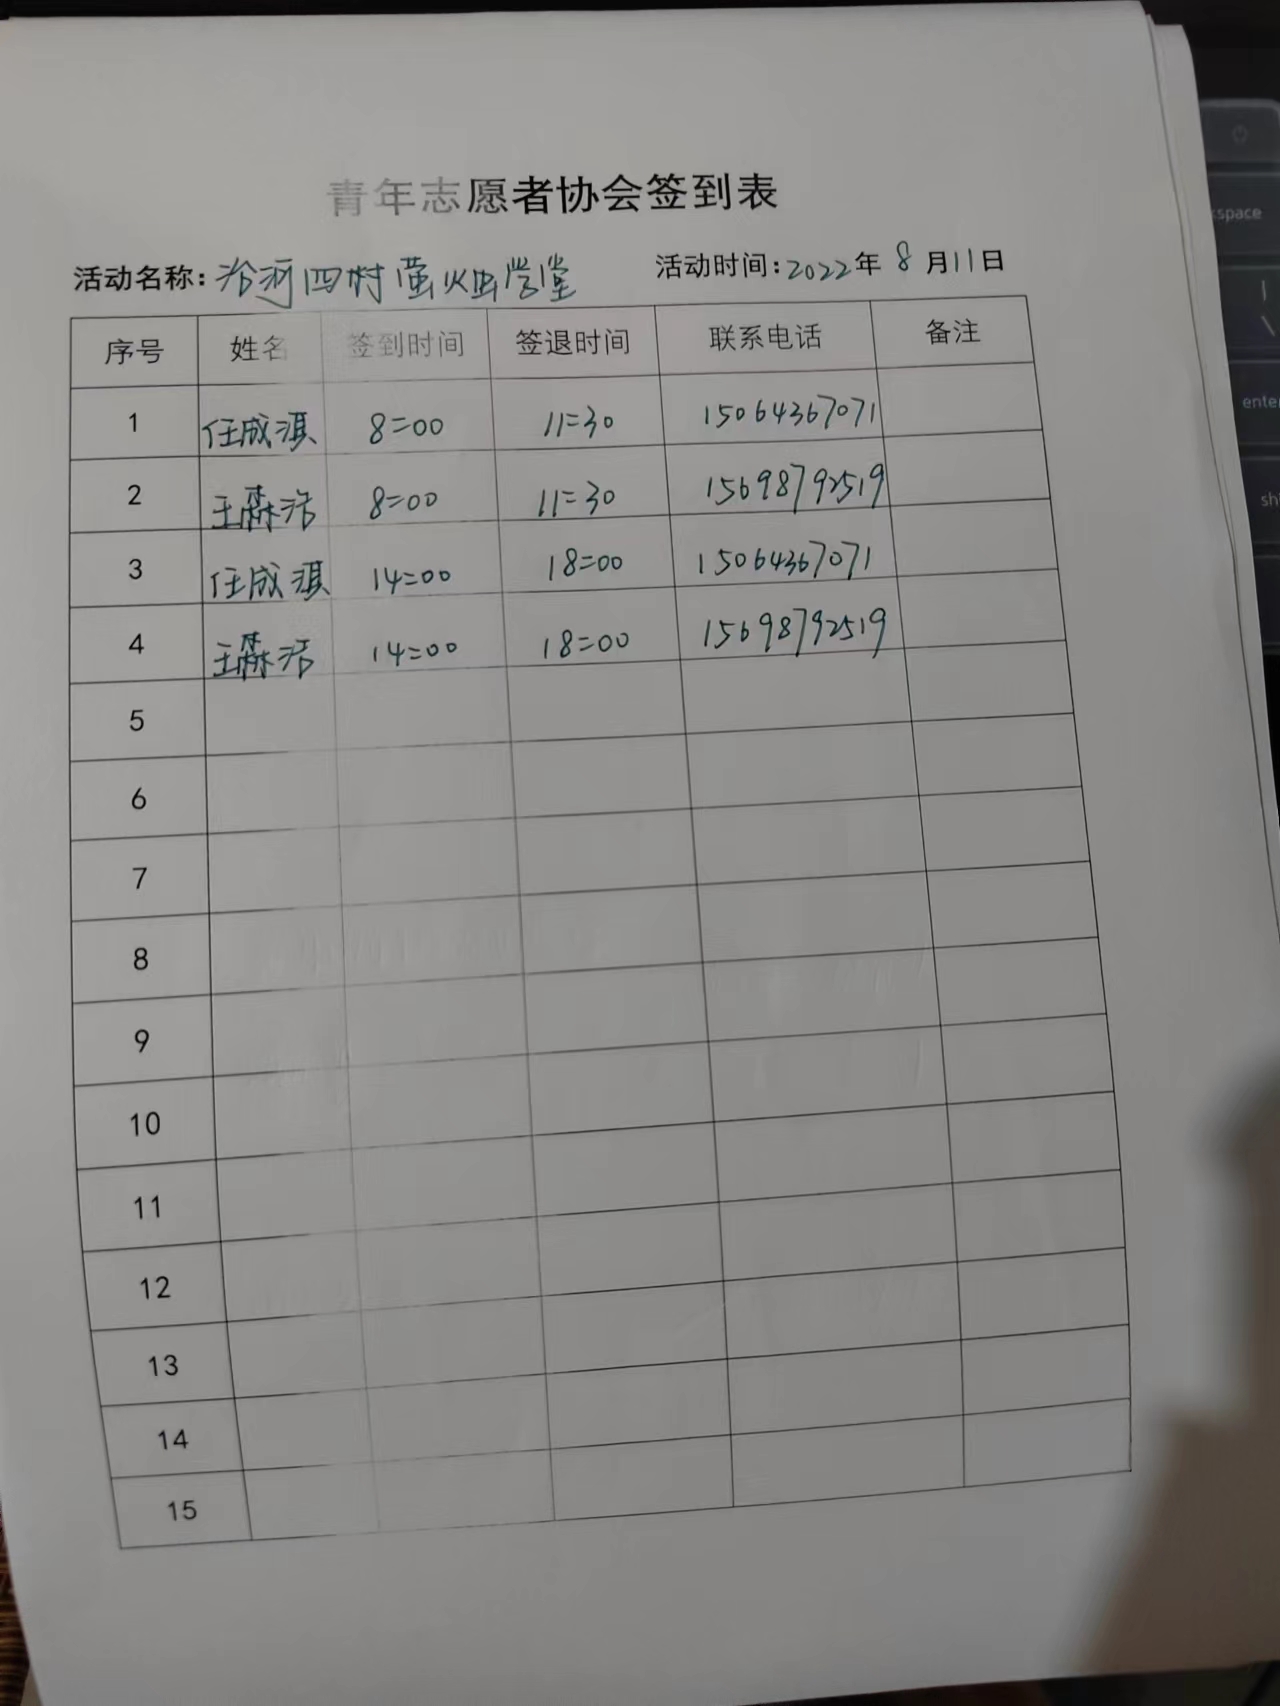 青年志愿者协会签到表
活动名称:治河四村萤火虫学堂 活动时间:2022年8月11日
序号 姓名 签到时间 签退时间 联系电话 备注
1 任成淇 8:00 11:30 15064367071
2 王森浩 8:00 11:30 15698792519
3 任成淇 14:00 18:00 15064367071
4 王森浩 14:00 18:00 15698792519
5
6
7
8
9
10
11
12
13
14
15
enter